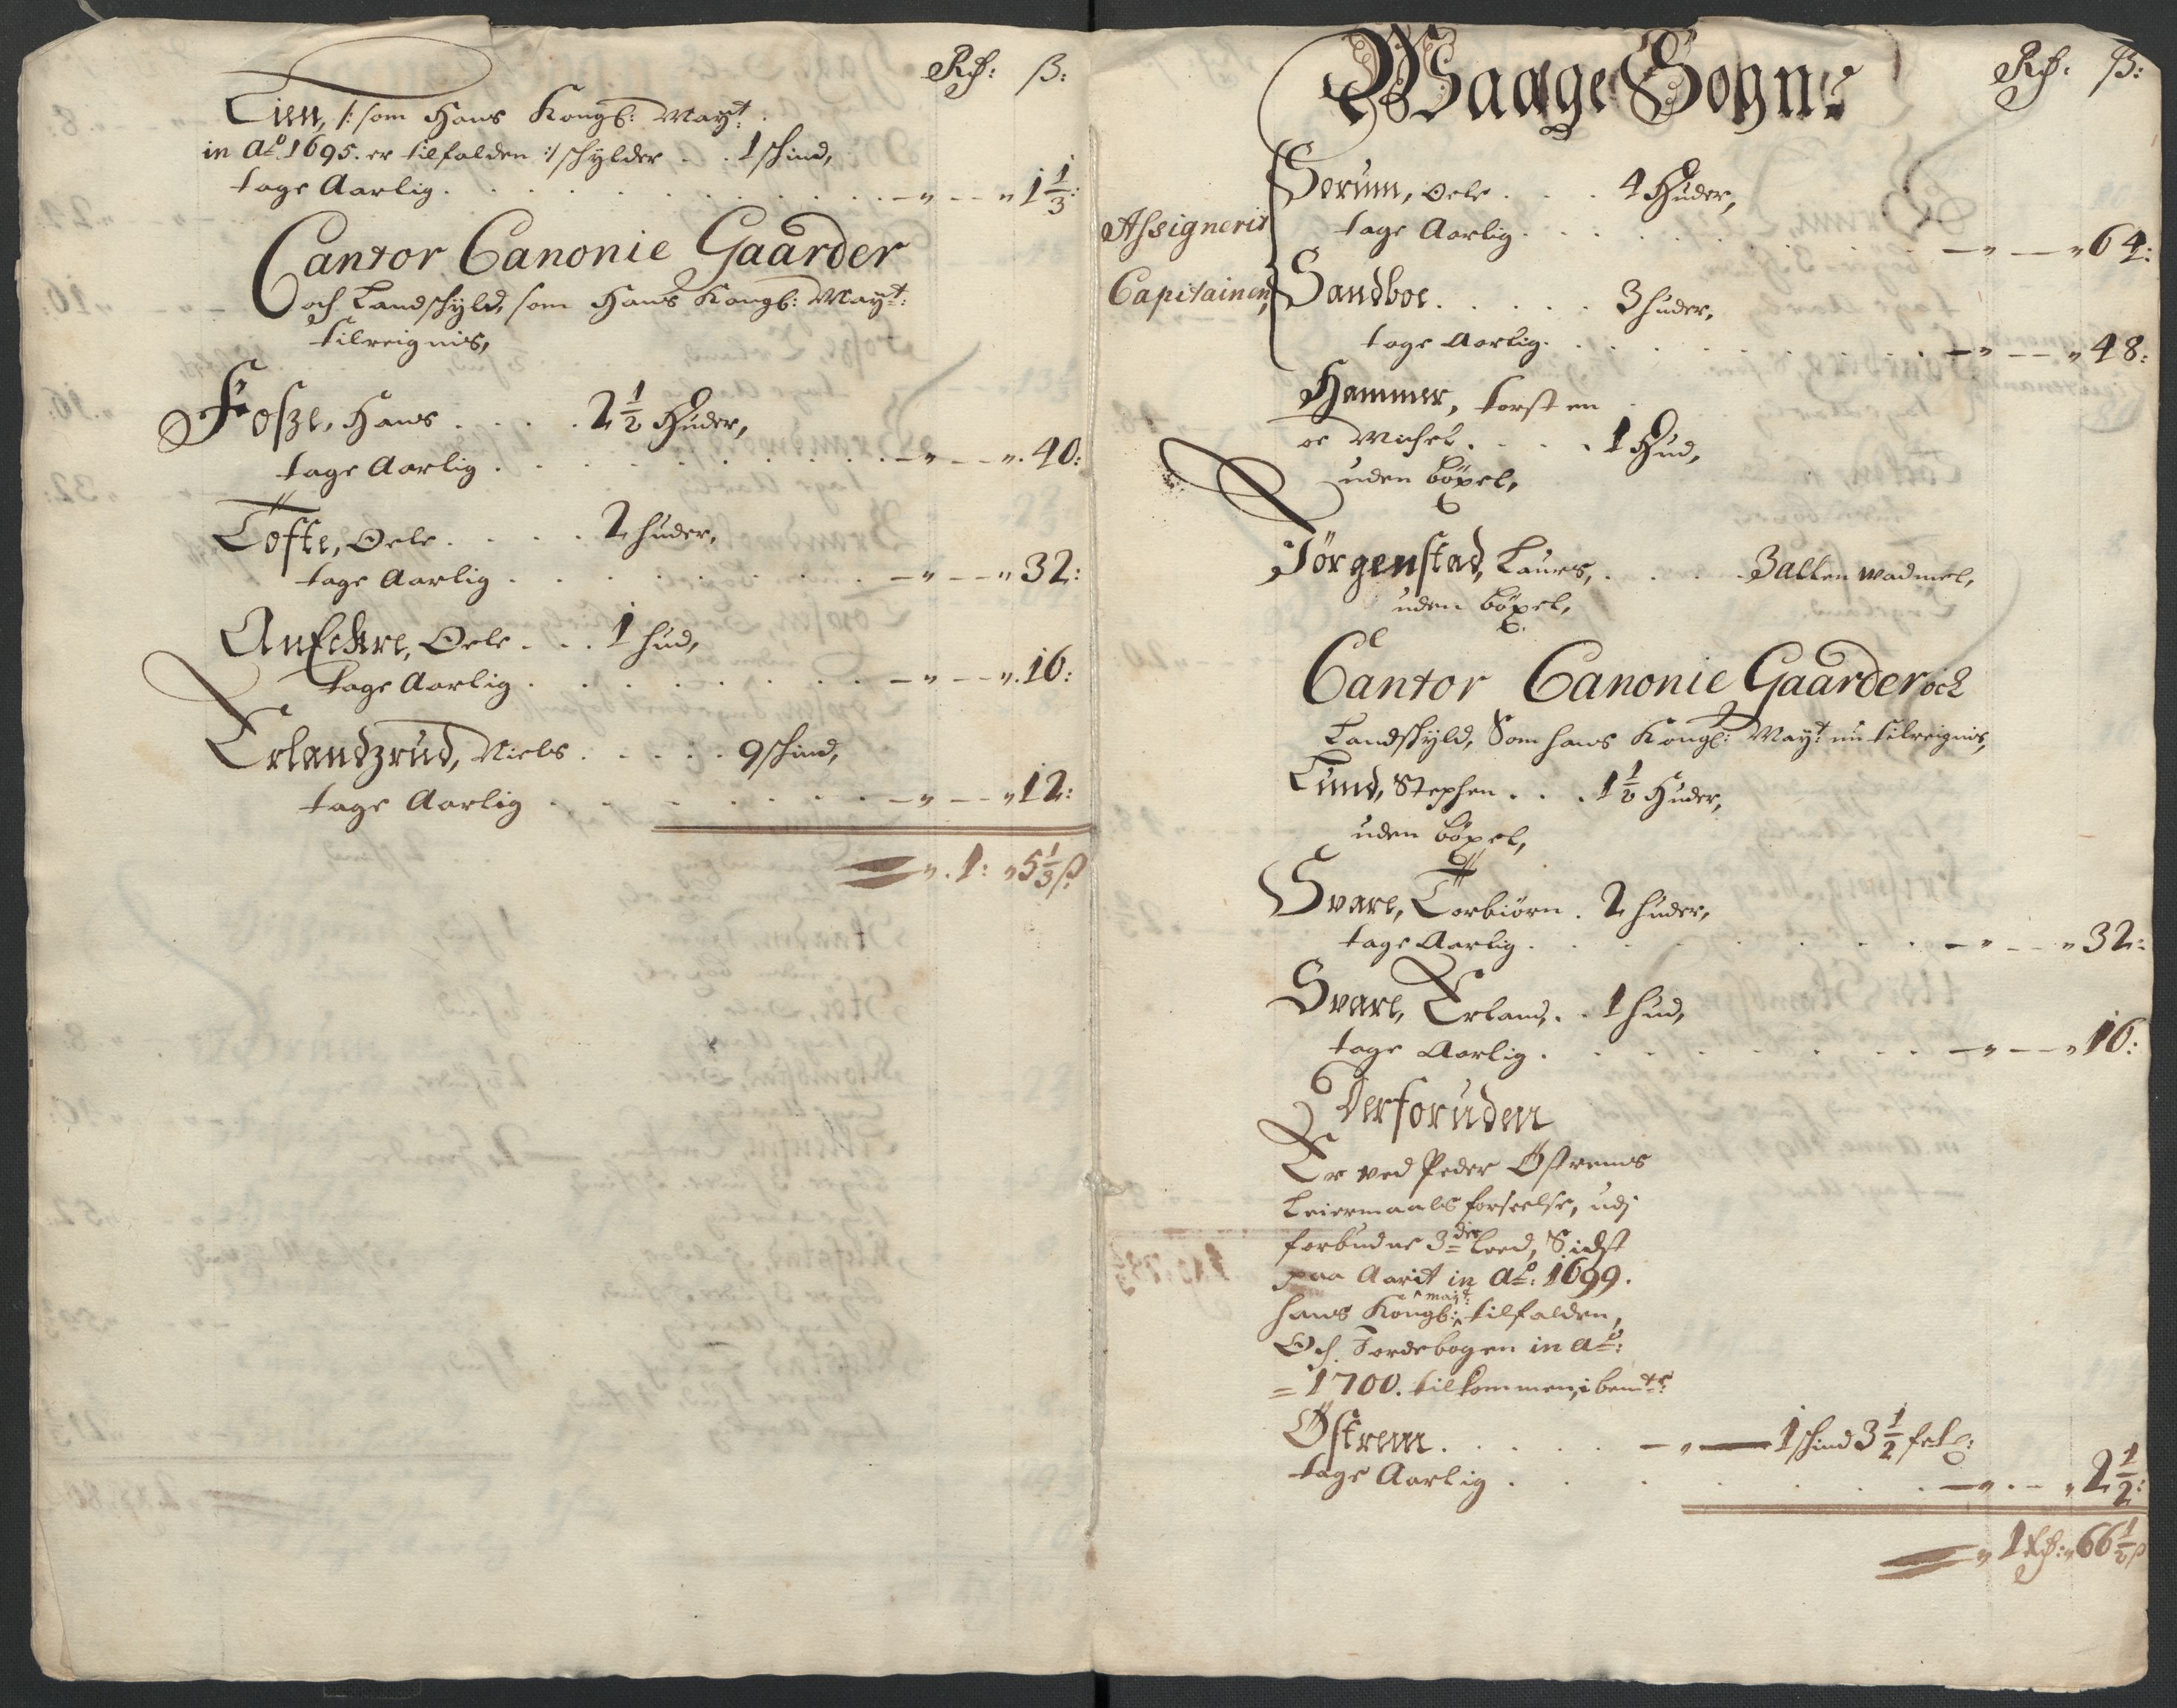 Rdr: ß:
Tien, /: som Hans Kongl: Mayt:
in Ao 1695. er tilfalden :/ schylder . . 1 schind,
tage Aarlig . . . . . . . — „ — „ 1 1/3:
Cantor Canonie Gaarder
och Landschyld, som Hans Kongl: Mayt:
tilreignis,
Fosze, Hans . . . . 2 1/2 Huder,
tage Aarlig . . . . . . . — „ — „ 40:
Tofte, Oele . . . . 2 huder,
tage Aarlig . . . . . . . — „ — „ 32:
Oele . . . 1 hud,
tage Aarlig . . . . . . . — „ — „ 16:
Erlandzrud, Niels . . . . . 9 schind,
tage Aarlig . . . . . . . — „ — „ 12:
„ . 1: „ 5 1/3 ß
Waage Sogn:
Rdr: ß:
Assignerit
Capitainen,
Serum, Oele . . . 4 Huder,
tage Aarlig . . . . . . . — „ — „ 64:
Sandboe . . . . . 3 huder,
tage Aarlig . . . . . . . — „ — „ 48:
Hammer, Torsten
oc Michel . . . . 1 Hud,
uden böxel,
Jörgenstad, Laurs, . . . . 3 allen wadmel,
uden böxel,
Cantor Canonie Gaarder och
Landschyld, Som hans Kongl: Mayt: nu tilreignis,
Lund, Stephen . . . 1 1/2 Huder,
uden böxel,
Svare, Torbiörn . 2 huder,
tage Aarlig . . . . . . . — „ — „ 32:
Svare, Erland, . . 1 hud,
tage Aarlig . . . . . . . — „ — „ 16:
Derforuden
Er ved Peder Östrems
Leiermaals forseelse, udj
forbudne 3die Leed, Sidst
paa Aarit in Ao: 1699.
hans Kongl: mayt: tilfalden,
Och Jordebogen in Ao:
= 1700. tilkommen, i bemte:
Östrem . . . . . — „ — 1 schind 3 1/2
tage Aarlig . . . . . . . — „ . — „ 2 1/2:
„ 1 Rdr: „ 66 1/2 ß